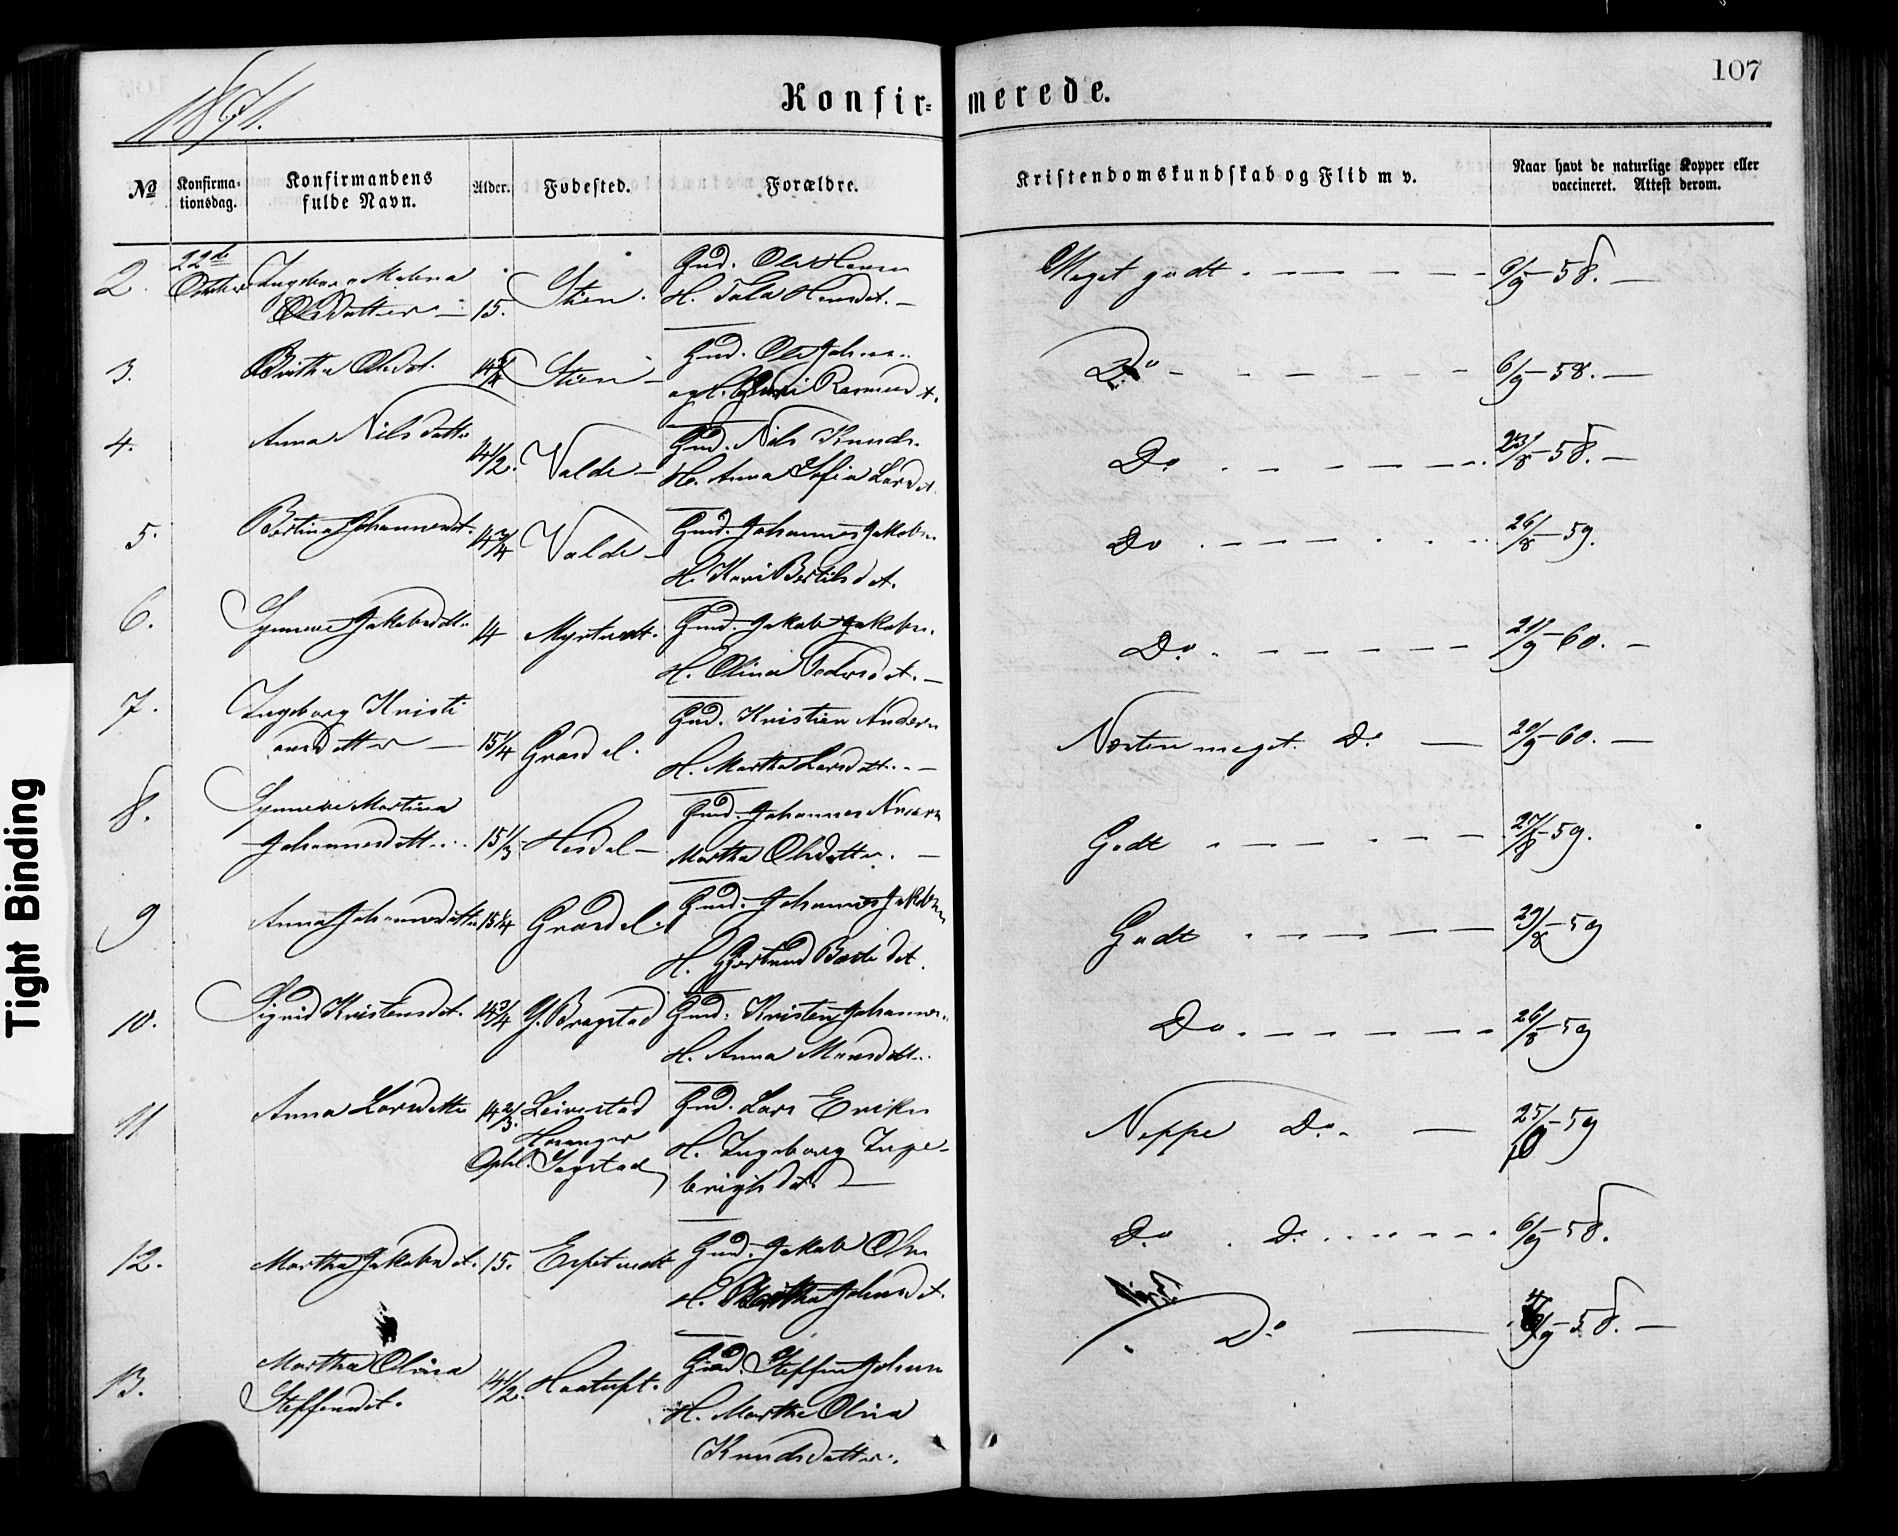 107
1871.
Konfir= merede.
№ Konfirma= tionsdag. Konfirmandens fulde Navn. Alder. Fødested. Forældre. Kristendomskundskab og Flid m v. Naar havt de naturlige Kopper eller vaccineret. Attest derom.
2. 22de October Ingeborg Malena Olsdatter 15. Stien. Gmd. Ole Hansen Meget godt 6/9 - 58.
H.
3. Britha Olsd. 14 3/4 Stien Gmd. Ole Johns. Do 6/9 - 58.
Rasmusd.
4. Anna Nilsdatter 14 1/2. Valde Gmd. Nils Knuds. Do 23/8 - 58.
H. Anna Sofia Larsd.
5. Bertina Johannesdt. 14 3/4 Valde Gmd. Johannes Jakobs. Do 26/8 - 59.
H. Kari Bertilsdt.
6. Synneve Jakobsdtt. 14 Gmd. Jakob Jakobs. Do. 21/9 - 60.
H. Olina Pedersdt.
7. Ingeborg Kristi ansdatter 15 1/4 Grasdal. Gmd. Kristian Anders. Næsten meget Do 20/9 - 60.
H. Martha Larsdtt.
8. Synneve Martina Johannesdtt. 15 1/3 Hesdal Gmd. Johannes Godt 27/8 - 59.
Martha Olsdatter.
9 Anna Johannesdatter 15 1/4 Grasdal. Gmd. Johannes Jakobsen Godt 29/8 - 59
H. Gjertrud
10. Sigrid Kristensdt. 14 3/4 Y. Bragstad Gmd. Kristen Johannes. Do 26/8 - 59
H. Anna Monsdtt.
11 Anna Larsdatter 14 2/3. Leirestad Gmd. Lars Eriks. Neppe Do. 25/10 - 59
Hosanger H. Ingeborg Inge-
Ophl. Sagstad brigtsdt.
12. Martha Jakobsdt. 15. Espetvedt Gmd. Jakob Ols. Do. Do 6/9 - 58.
H. Britha Johnsdt.
13. Martha Olina Steffensdt. 14 1/2. Haatuft. Gmd. Steffen Johnsen Do - 58.
H. Martha Olina
Knudsdatter.
Tight Binding